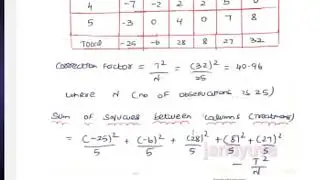 4 -7 -2 2 2 5 0
5 -3 0 4 0 7 8
Total -25 -6 28 8 27 32
Correction Factor = T²/N = (32)²/25 = 40.96
where N (no of observations is 25)
Sum of squares between columns (treatments)
= (-25)²/5 + (-6)²/5 + (28)²/5 + (8)²/5 + (27)²/5
- T²/N